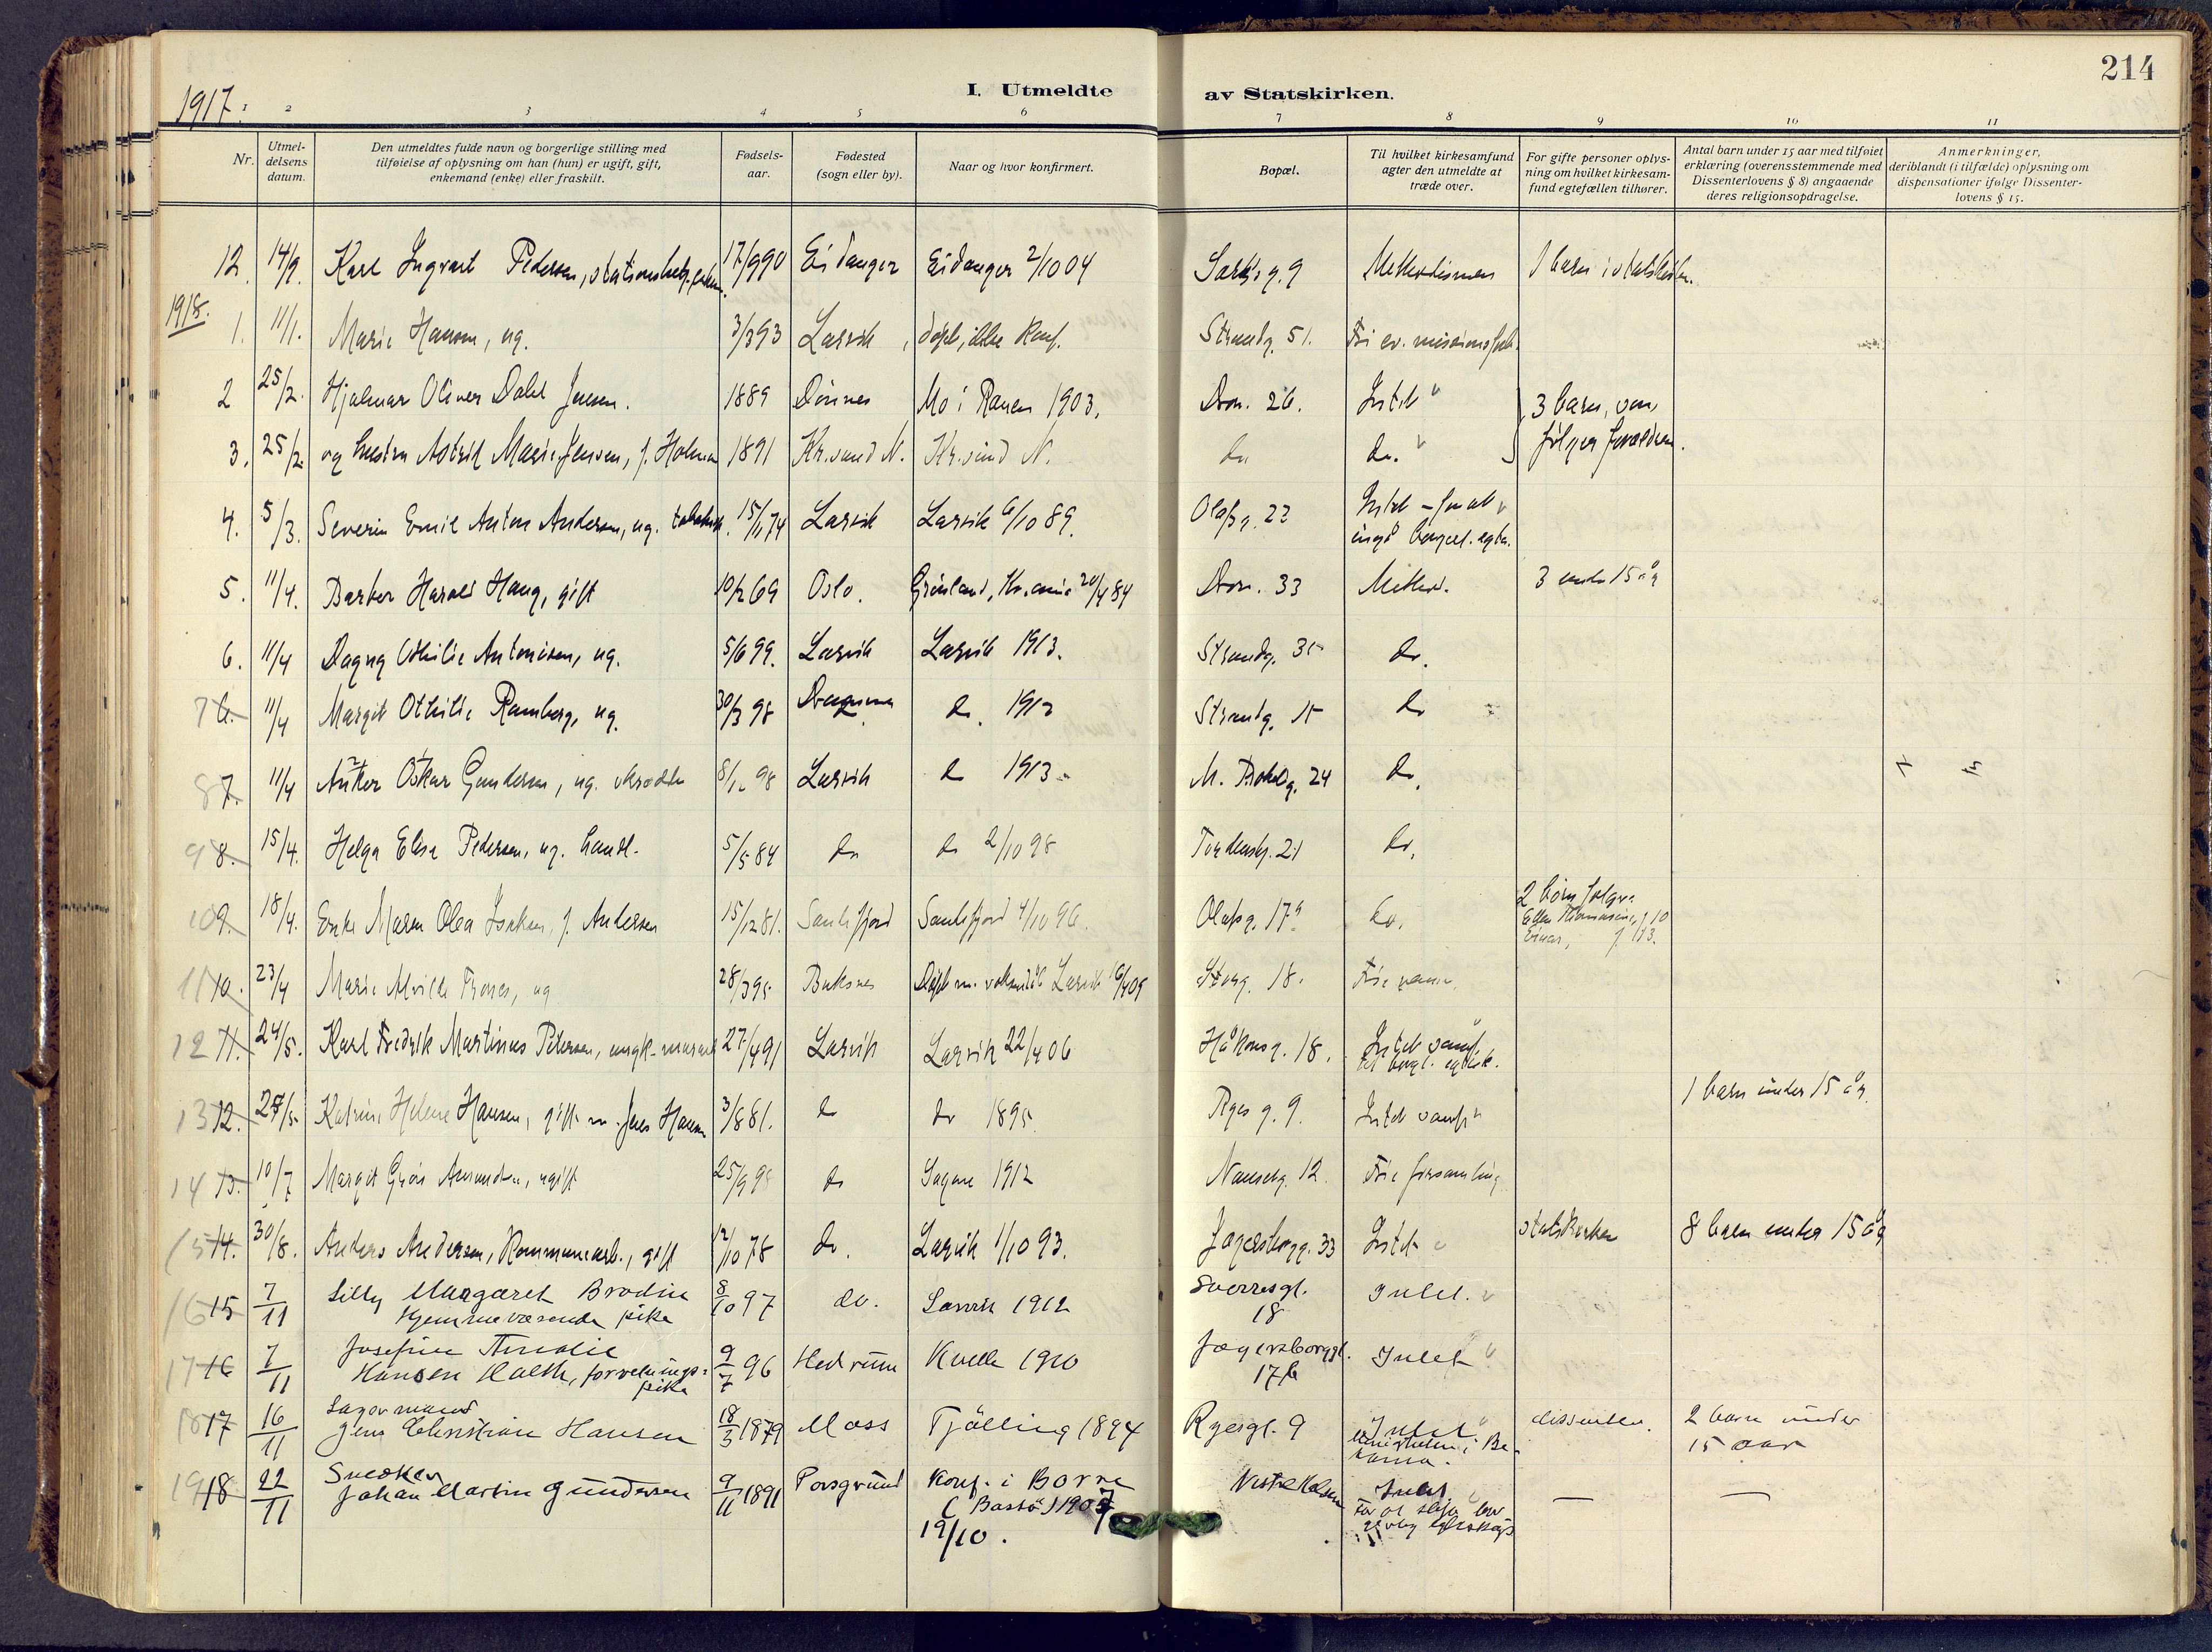 214
1917.
I. Utmeldte av Statskirken.
1 2 3 4 5 6 7 8 9 10 11
Nr.
Utmel-
delsens
datum.
Den utmeldtes fulde navn og borgerlige stilling med
tilføielse af oplysning om han (hun) er ugift, gift,
enkemand (enke) eller fraskilt.
Fødsels-
aar.
Fødested
(sogn eller by).
Naar og hvor konfirmert.
Bopæl.
Til hvilket kirkesamfund
agter den utmeldte at
træde over.
For gifte personer oplys-
ning om hvilket kirkesam-
fund egtefællen tilhører.
Antal barn under 15 aar med tilføiet
erklæring (overensstemmende med
Dissenterlovens § 8) angaaende
deres religionsopdragelse.
Anmerkninger,
deriblandt (i tilfælde) oplysning om
dispensationer ifølge Dissenter-
lovens § 15.
12. 14/9. Karl Ingvart Pedersen, 17/9 90 Eidanger Eidanger 2/10 04 9 Methodismen 1 barn i statskirken.
1918.
1. 11/1. Marie Hansen, ug. 3/3 93 Larvik, døpt, ikke konf. Strandg. 51. Fri ev. missionsforb.
2 25/2. Hjalmar Oliver Dahl Jensen. 1889 Dønnes Mo i Ranen 1903. Dron. 26. Intet 3 barn, som
3. 25/2. og hustru Astrid Marie Jensen, f. 1891 Kr.sund N. Kr.sund N. do do. følger forældrene.
4. 5/3. Severin Emil Anton Andersen, ug. 15/11 74 Larvik Larvik 6/10 89. Olafsg. 22 Intet - for at
inngå borgerl. egtesk.
5. 11/4. Barber Harald Haug, gift 10/2 69 Oslo. Grønland, Kr.ania 20/4 84 Dron. 33 Method. 3 under 15 år
6. 11/4 Dagny Othilie Antonisen, ug. 5/6 99. Larvik Larvik 1913. Strandg. 35 do.
7 6. 11/4 Margit Othilie Ramberg, ug. 30/3 98 do. 1912 Strandg. 15 do
8 7. 11/4 Anker Oskar Gundersen, ug. 98 Larvik do 1913. 24 do.
9 8. 15/4. Helga Elise Pedersen, ug. handl. 5/5 84 do do 2/10 98 Tordenskj. 21 do.
10 9. 18/4. Enke Maren Olea Isaksen, f. Andersen 15/12 81. Sandefjord Sandefjord 4/10 96. Olafsg. 17 do. 2 børn følger:
Ellen Thomasine, f. 10
Einar, f. 1913.
11 10. 23/4 Marie Alvilde Trones, ug 28/3 95 Buksnes Døpt m. Larvik 16/4 09 Storg. 18.
12 11. 24/5. Karl Fredrik Martinus Petersen, ungk. 27/4 91 Larvik Larvik 22/4 06 Håkonsg. 18. Intet samf.
13 12. 27/5 Katrine Helene Hansen, gift m. Jens Hansen 3/8 81. do do 1895 Ryes g. 9. Intet samf. 1 barn under 15 år.
14 13. 10/7 Margit Amundsen, ugift 25/9 98 do Sagene 1912 Nansetg. 12 Frie forsamling
15 14. 30/8. Anders Andersen, Kommunearb., gift 12/10 78 do. Larvik 1/10 93. Jegersborgg. 33 Intet statskirken 8 barn under 15 år
16 15 7/11 Lilly Margaret Brodin
Hjemmeværende pike 8/10 97 do. Larvik 1912 Sverresgt.
18 Intet.
17 16 7/11 Josefine Amalie
Hansen Holth, forretnings-
pike 9/7 96 Hedrum Kvelle 1910 Jegersborggt.
17 b Intet
18 17 16/11 Lagermand
Jens Christian Hansen 18/3 1879 Moss Tjølling 1894 Ryesgt. 9 Intet dissenter. 2 barn under
15 aar
19 18 22/11 Snedker
Johan Martin Gundersen 9/11 1891 Porsgrund Konf. i Borre
(Bastø) 1907
19/10. Vestre Halsen Intet
For at